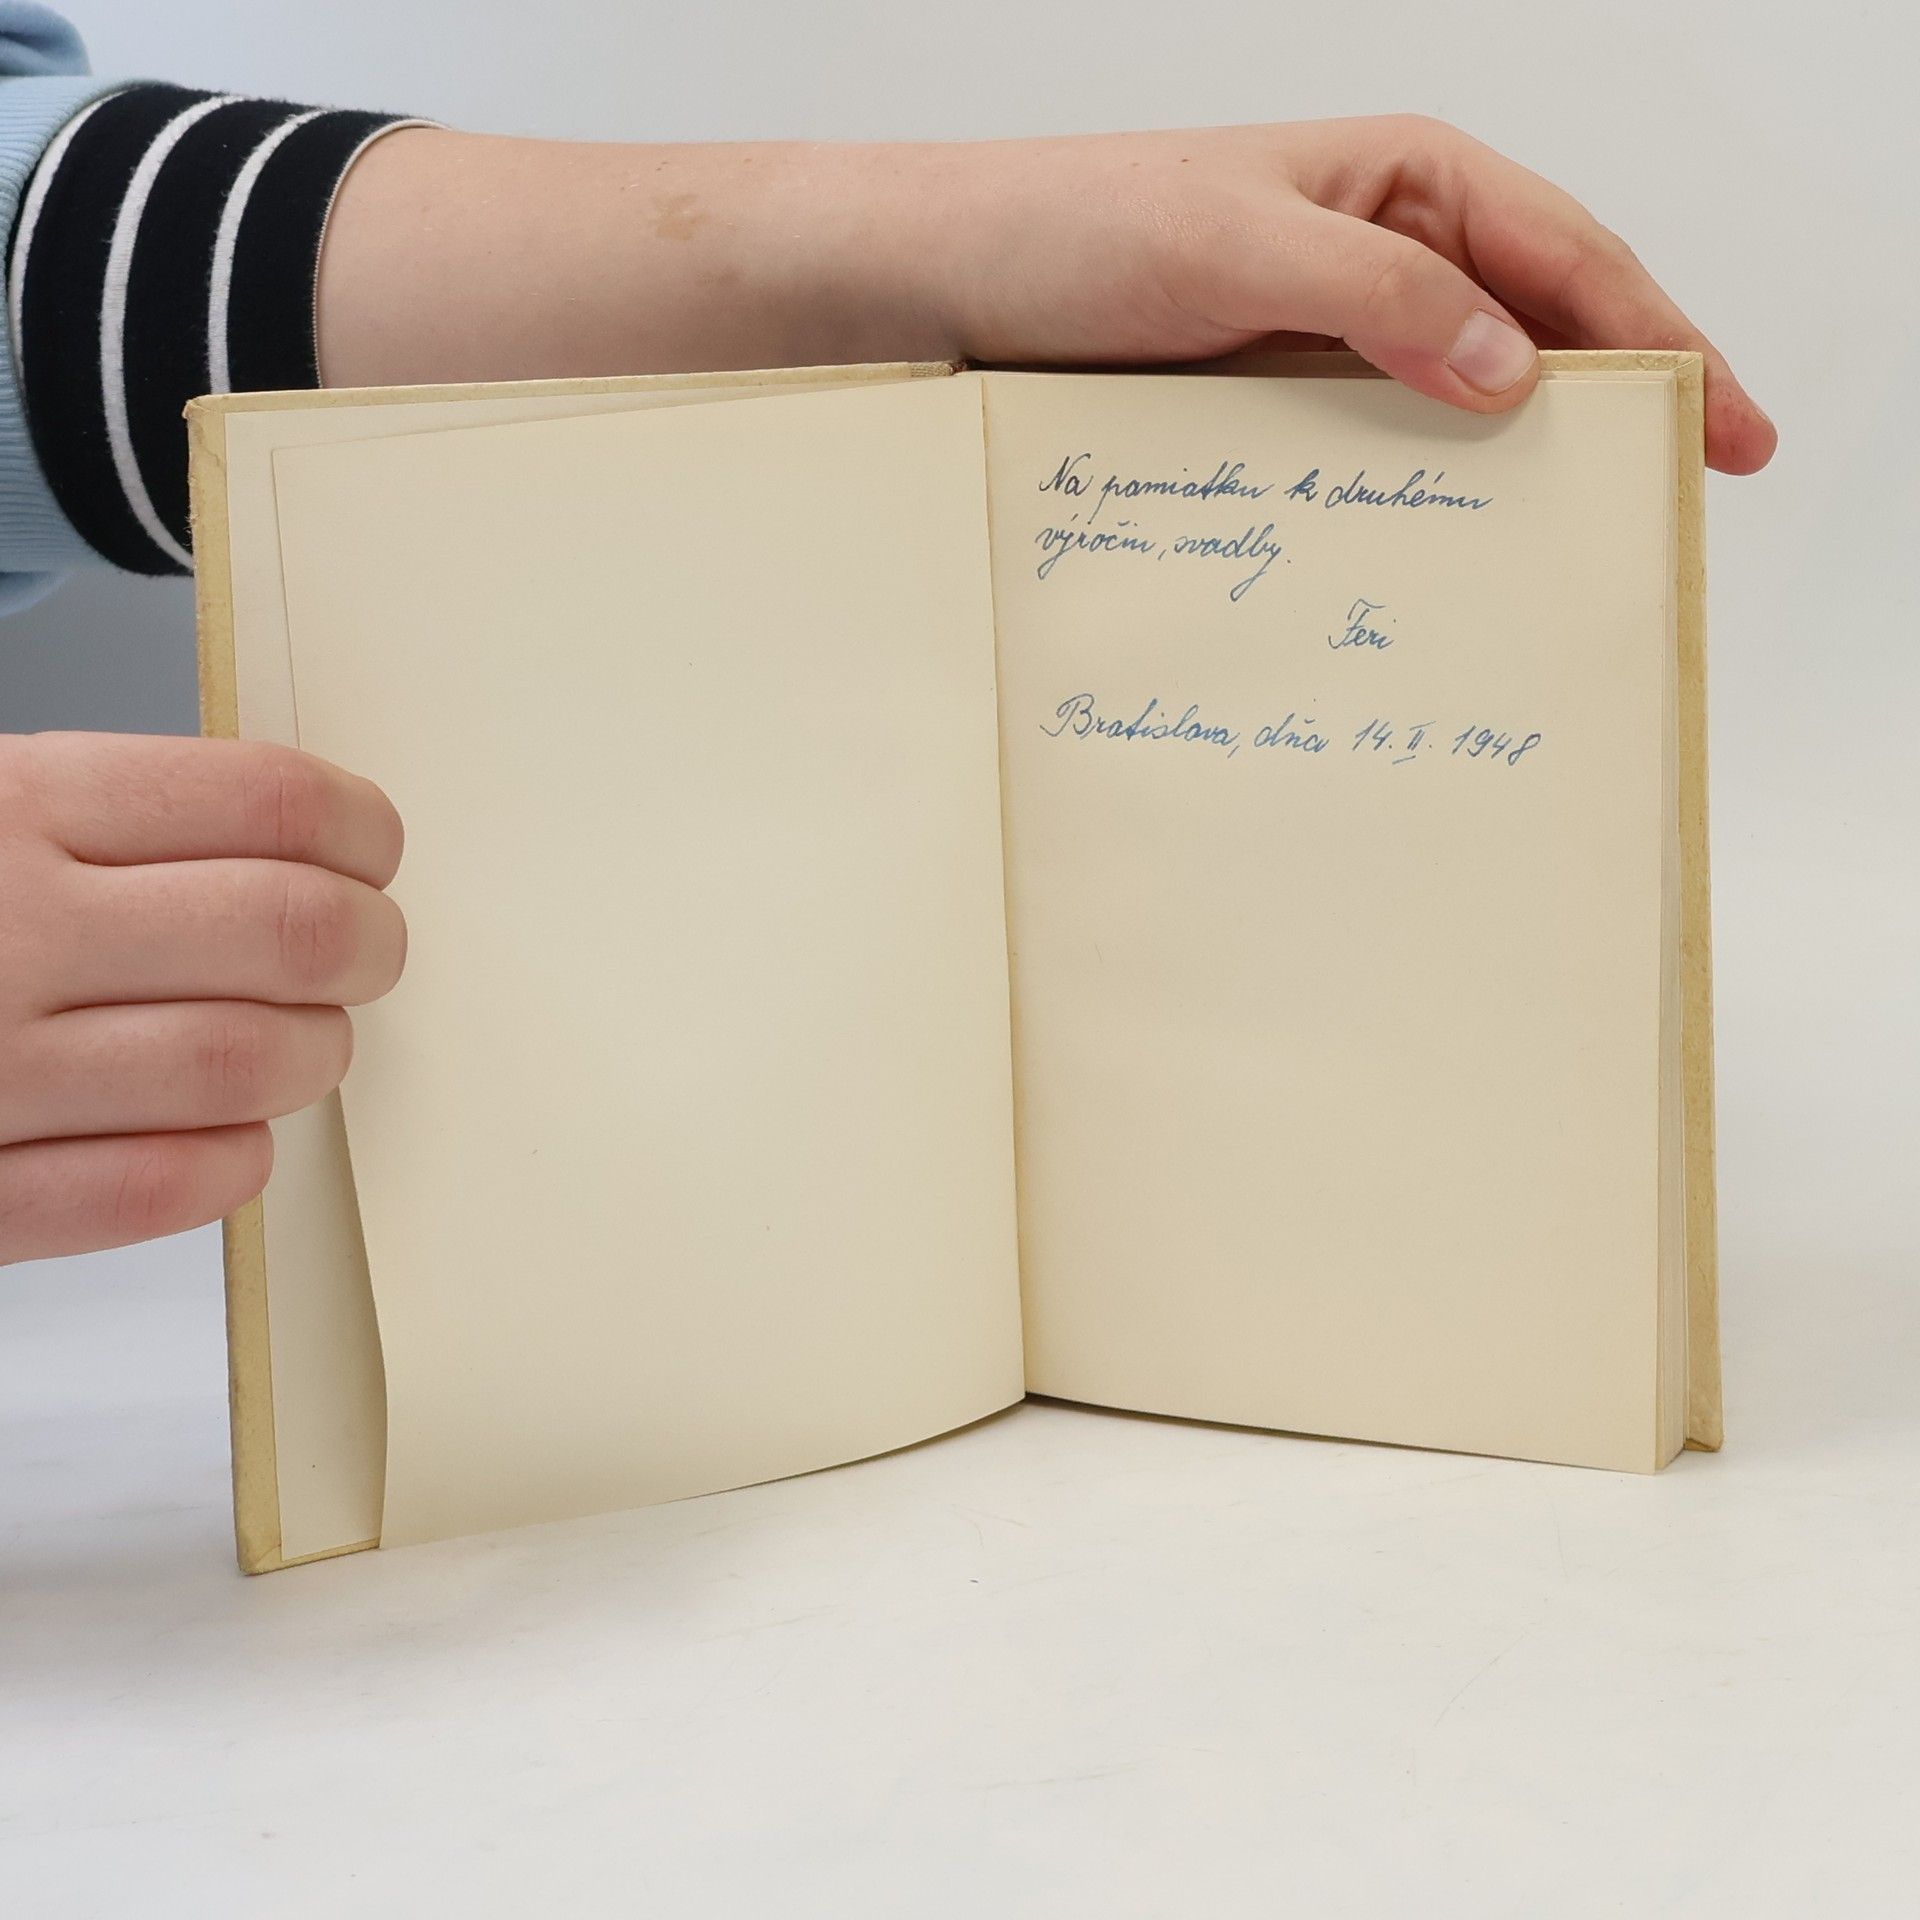 Na pamiatku k druhému
výročiu, svadby.
Feri
Bratislava, dňa 14. II. 1948